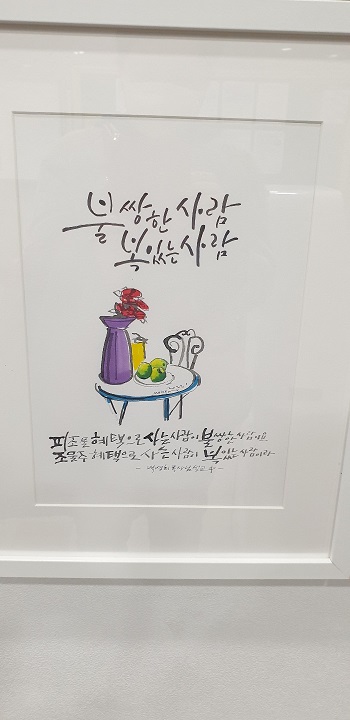 불쌍한 사람
복있는 사람
피조물 혜택으로 사는 사람이 불쌍한 사람이요
조물주 혜택으로 사는 사람이 복있는 사람이라